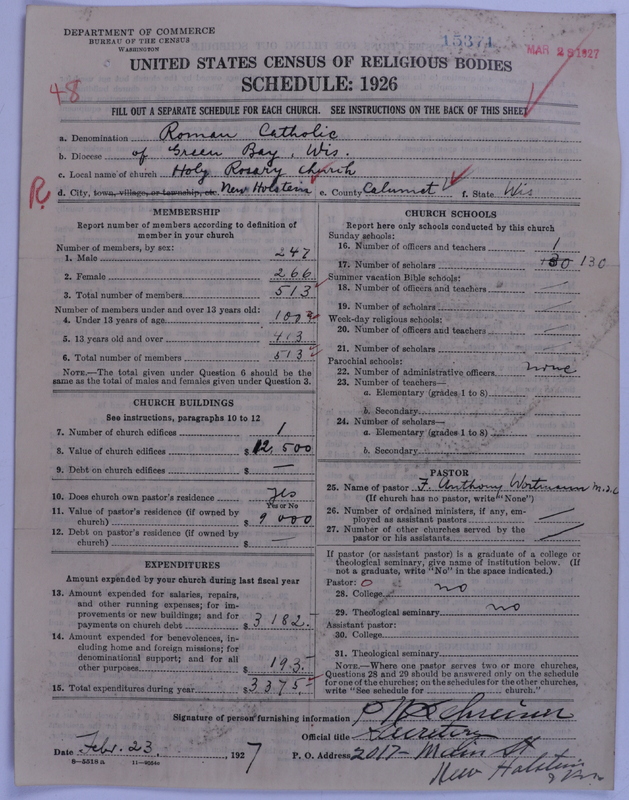 DEPARTMENT OF COMMERCE
BUREAU OF THE CENSUS
WASHINGTON
15371
MAR 25 1927
UNITED STATES CENSUS OF RELIGIOUS BODIES
SCHEDULE: 1926
48
FILL OUT A SEPARATE SCHEDULE FOR EACH CHURCH. SEE INSTRUCTIONS ON THE BACK OF THIS SHEET
a. Denomination Roman Catholic
b. Diocese of Green Bay, Wis.
c. Local name of church Holy Rosary Church
R
d. City, town, village, or township, etc. New Holstein e. County Calumet f. State Wis
MEMBERSHIP
Report number of members according to definition of
member in your church
Number of members, by sex:
1. Male 247
2. Female 266
3. Total number of members 513
Number of members under and over 13 years old:
4. Under 13 years of age 100
5. 13 years old and over 413
6. Total number of members 513
NOTE.—The total given under Question 6 should be the
same as the total of males and females given under Question 3.
CHURCH BUILDINGS
See instructions, paragraphs 10 to 12
7. Number of church edifices 1
8. Value of church edifices $ 12,500
9. Debt on church edifices $ —
10. Does church own pastor's residence yes
Yes or No
11. Value of pastor's residence (if owned by
church) $ 9000
12. Debt on pastor's residence (if owned by
church) $ —
EXPENDITURES
Amount expended by your church during last fiscal year
13. Amount expended for salaries, repairs,
and other running expenses; for im-
provements or new buildings; and for
payments on church debt $ 3182.-
14. Amount expended for benevolences, in-
cluding home and foreign missions; for
denominational support; and for all
other purposes $ 193.-
15. Total expenditures during year $ 3375.-
CHURCH SCHOOLS
Report here only schools conducted by this church
Sunday schools:
16. Number of officers and teachers 1
17. Number of scholars 130 130
Summer vacation Bible schools:
18. Number of officers and teachers
19. Number of scholars
Week-day religious schools:
20. Number of officers and teachers
21. Number of scholars
Parochial schools:
22. Number of administrative officers none
23. Number of teachers—
a. Elementary (grades 1 to 8)
b. Secondary
24. Number of scholars—
a. Elementary (grades 1 to 8)
b. Secondary
PASTOR
25. Name of pastor F. Anthony Wortmann
(If church has no pastor, write "None")
26. Number of ordained ministers, if any, em-
ployed as assistant pastors
27. Number of other churches served by the
pastor or his assistants
If pastor (or assistant pastor) is a graduate of a college or
theological seminary, give name of institution below. (If
not a graduate, write "No" in the space indicated.)
Pastor: O
28. College no
29. Theological seminary no
Assistant pastor:
30. College
31. Theological seminary
NOTE.—Where one pastor serves two or more churches,
Questions 28 and 29 should be answered only on the schedule
for one of the churches; on the schedules for the other churches,
write "See schedule for church."
Signature of person furnishing information
Official title Secretary
Date Febr. 23, 1927 P. O. Address 2017- Main St
New Holstein
8—5518 a